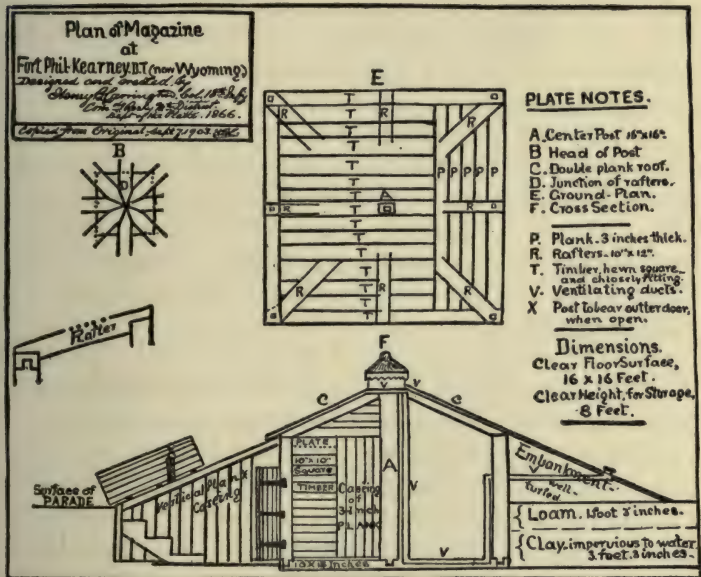 Plan of Magazine
at
Fort Phil-Kearney. D.T. (now Wyoming)
Designed and erected by
Henry B. Carrington, Col. 18th
1866.
Copied from Original, Sept 7, 1903.
B
D
E
T
T
T
T
T
T
T
T
T
T
T
T
R
R
R
R
R
R
R
R
A
P P P P P
PLATE NOTES.
A. Center Post 16"x16".
B Head of Post
C. Double plank roof.
D. Junction of rafters.
E. Ground-Plan.
F. Cross Section.
P. Plank-3 inches thick.
R. Rafters-10"x12".
T. Timber, hewn square
and chlosely fitting.
V. Ventilating ducts.
X Post to bear outter door,
when open.
Dimensions.
Clear Floor Surface,
16 x 16 Feet.
Clear Height, for Storage,
8 Feet.
Rafter
F
V V
C C
PLATE
10"x10"
SQUARE
TIMBER
Casing
of
3 inch
PLANK
A
V
V
Surface of
PARADE
Vertical Plank
Casing
Embankment
well-
turfed
{ Loam. 1 foot 3 inches.
{ Clay. impervious to water
3. feet. 3 inches.